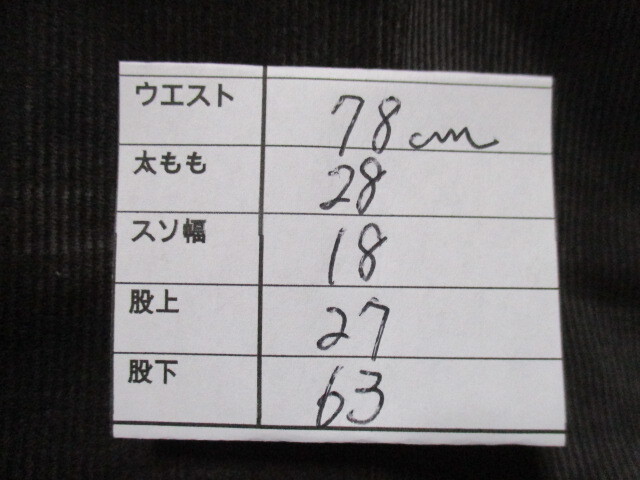 ウエスト 78cm
太もも 28
スソ幅 18
股上 27
股下 63